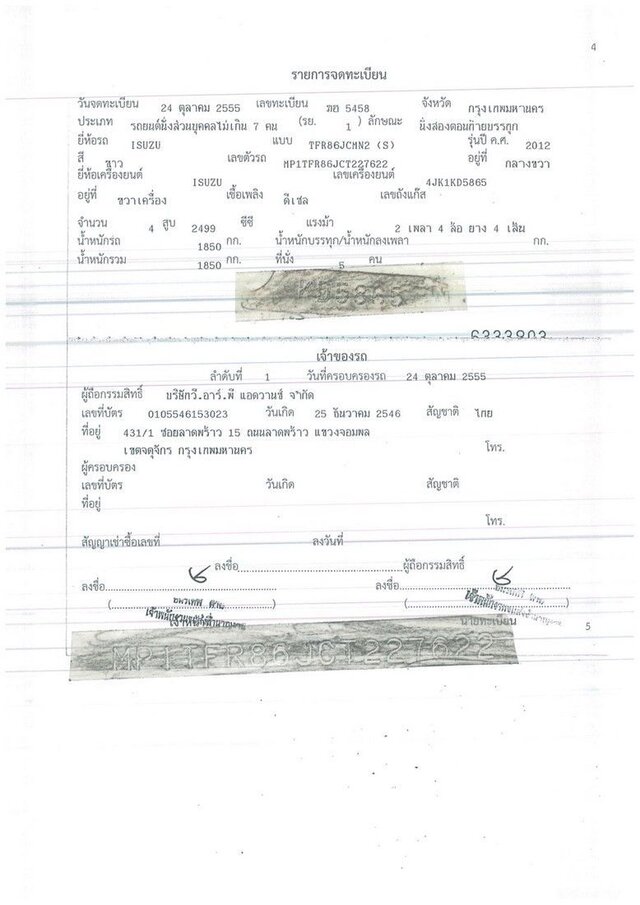 4
รายการจดทะเบียน
วันจดทะเบียน 24 ตุลาคม 2555 เลขทะเบียน 5458 จังหวัด กรุงเทพมหานคร
ประเภท รถยนต์นั่งส่วนบุคคลไม่เกิน 7 คน (รย. 1 ) ลักษณะ นั่งสองตอนท้ายบรรทุก
ยี่ห้อรถ ISUZU แบบ TFR86JCMN2 (S) รุ่นปี ค.ศ. 2012
สี ขาว เลขตัวรถ MP1TFR86JCT227622 อยู่ที่ กลางขวา
ยี่ห้อเครื่องยนต์ ISUZU เลขเครื่องยนต์ 4JK1KD5865
อยู่ที่ ขวาเครื่อง เชื้อเพลิง ดีเซล เลขถังแก๊ส
จำนวน 4 สูบ 2499 ซีซี แรงม้า 2 เพลา 4 ล้อ ยาง 4 เส้น
น้ำหนักรถ 1850 กก. น้ำหนักบรรทุก/น้ำหนักลงเพลา กก.
น้ำหนักรวม 1850 กก. ที่นั่ง 5 คน
KD5865
6333803
เจ้าของรถ
ลำดับที่ 1 วันที่ครอบครองรถ 24 ตุลาคม 2555
ผู้ถือกรรมสิทธิ์ บริษัทวี.อาร์.พี แอดวานซ์ จำกัด
เลขที่บัตร 0105546153023 วันเกิด 25 ธันวาคม 2546 สัญชาติ ไทย
ที่อยู่ 431/1 ซอยลาดพร้าว 15 ถนนลาดพร้าว แขวงจอมพล
เขตจตุจักร กรุงเทพมหานคร โทร.
ผู้ครอบครอง
เลขที่บัตร วันเกิด สัญชาติ
ที่อยู่
โทร.
สัญญาเช่าซื้อเลขที่ ลงวันที่
ลงชื่อ ผู้ถือกรรมสิทธิ์
ลงชื่อ ลงชื่อ
( ) ( )
นายทะเบียน
5
MP1TFR86JCT227622